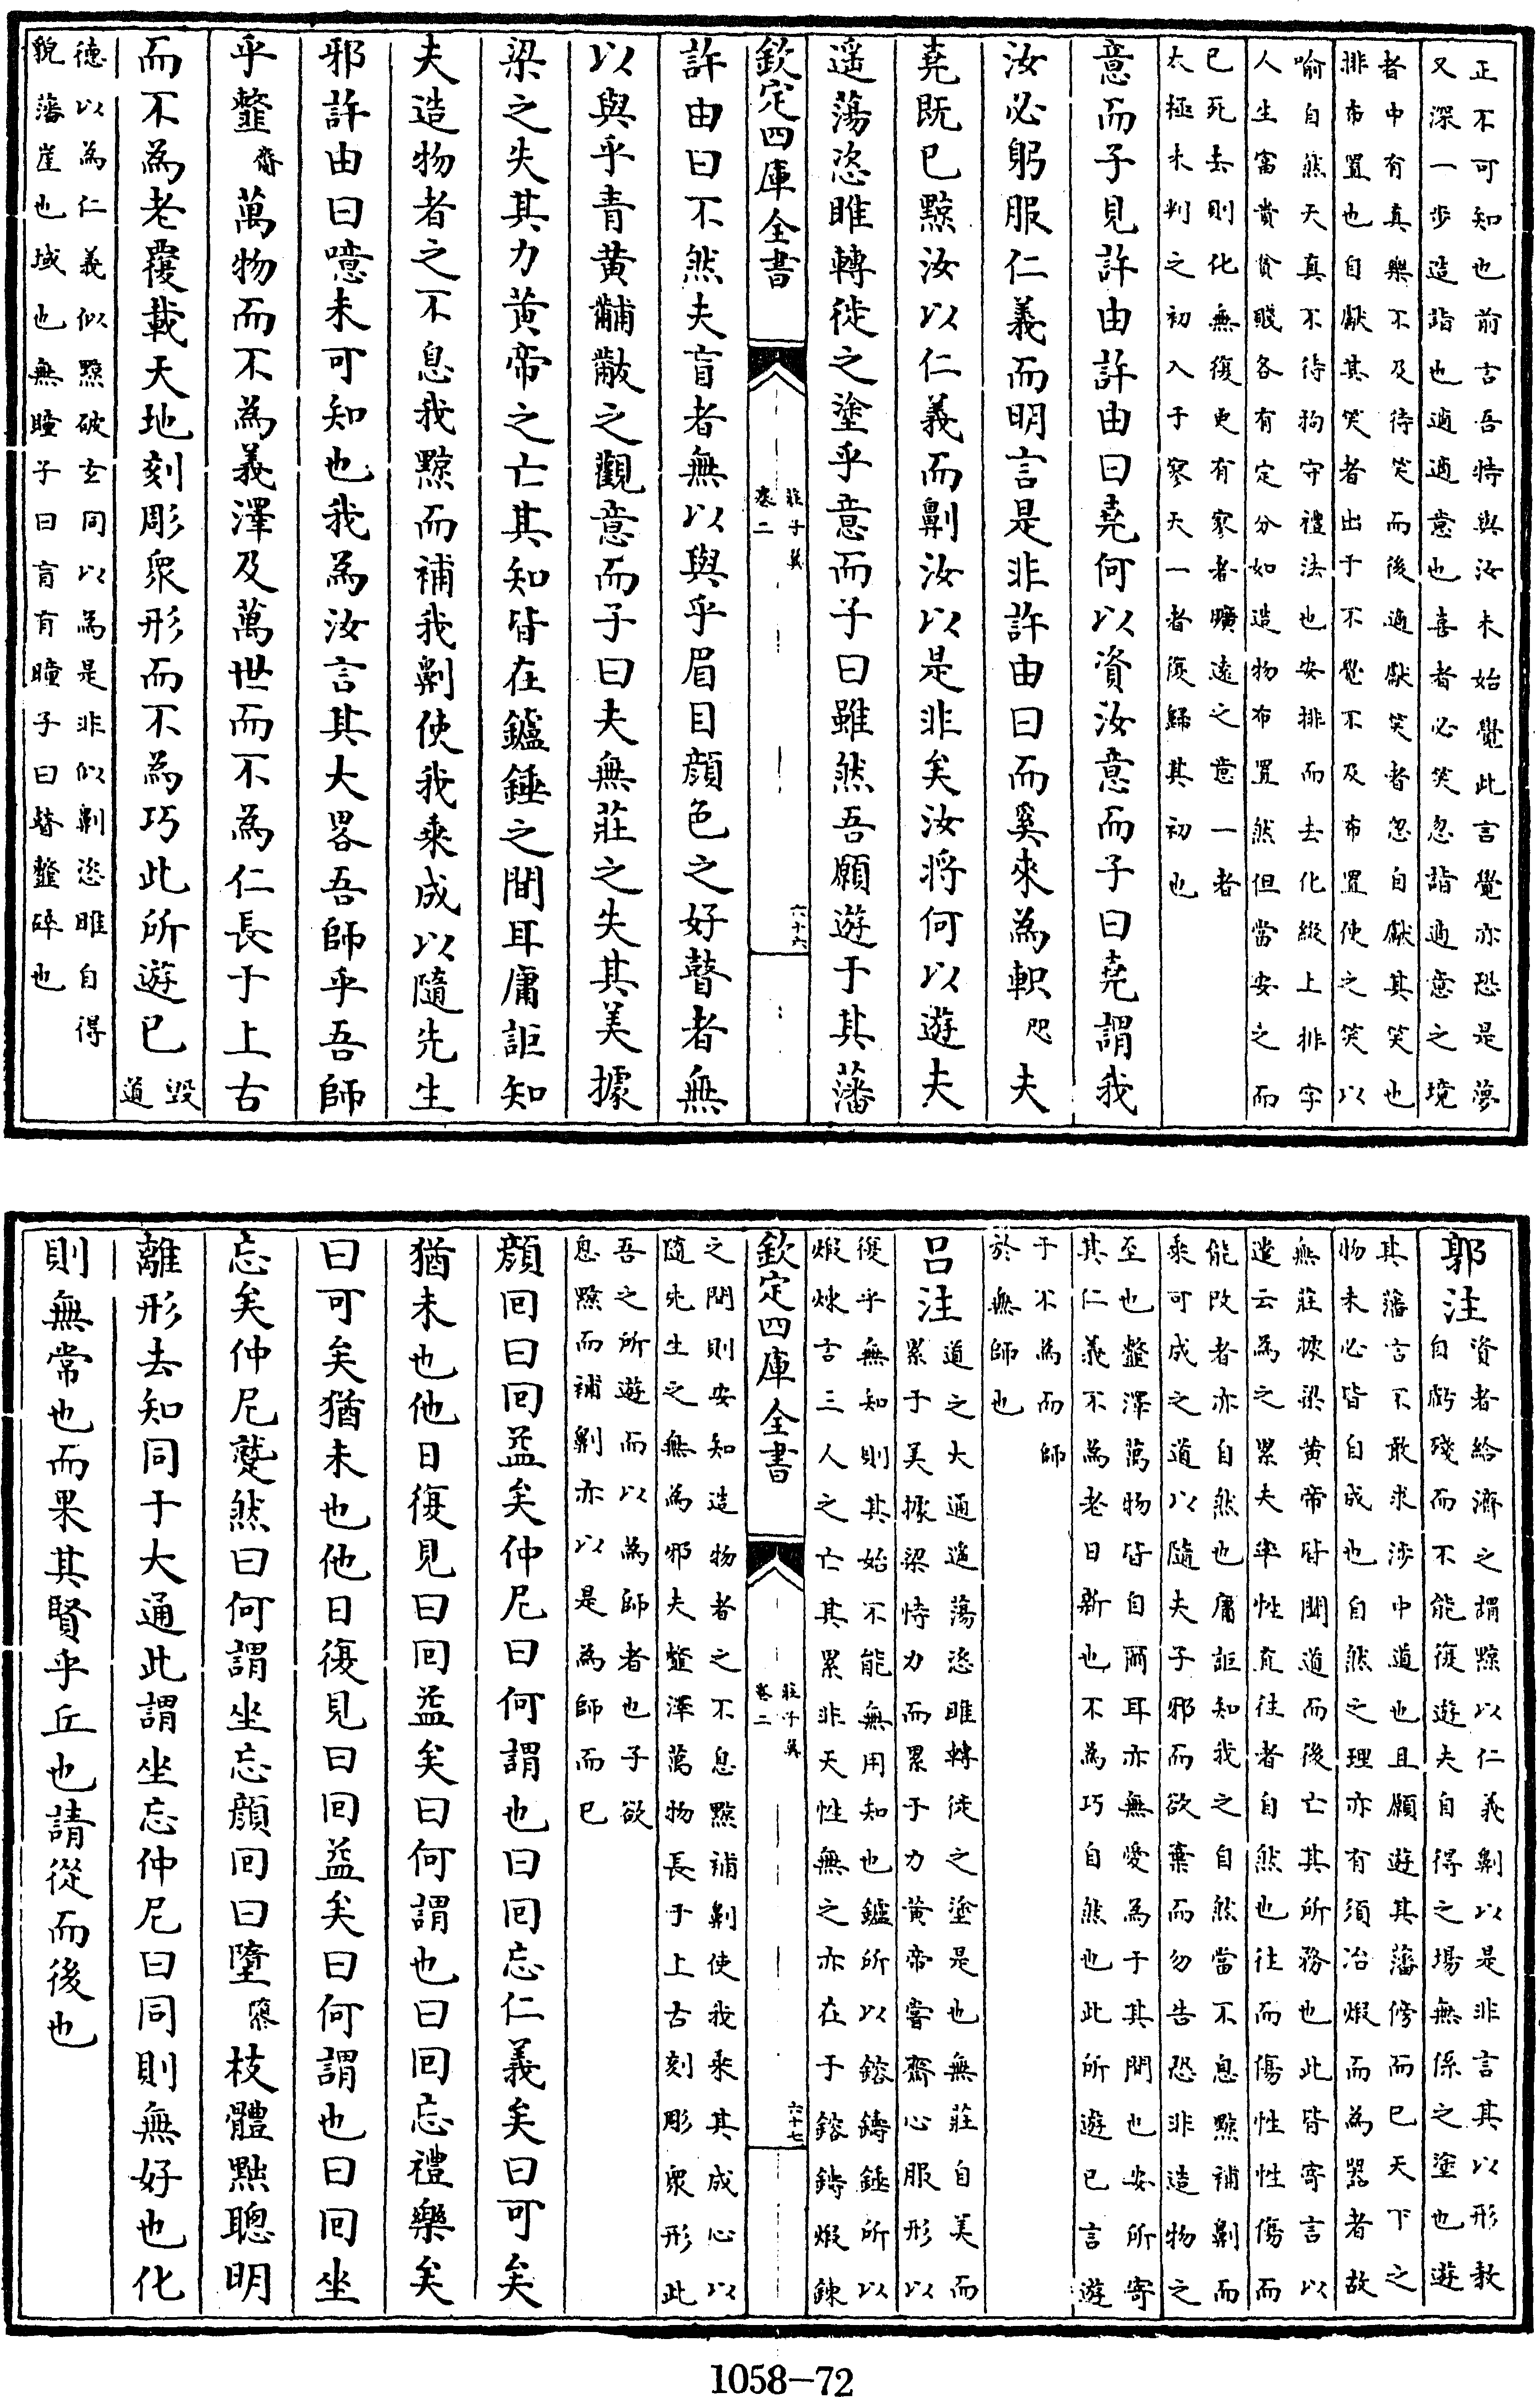 正不可知也前言吾特與汝未始覺此言覺亦恐是夢
又深一歩造詣也適適意也喜者必笑忽詣適意之境
者中有真樂不及待笑而後適獻笑者忽自獻其笑也
排布置也自獻其笑者出于不覺不及布置使之笑以
喻自然天真不待拘守禮法也安排而去化縱上排字
人生富貴貧賤各有定分如造物布置然但當安之而
已死去則化無復更有寥者曠逺之意一者
太極未判之初入于寥天一者復歸其初也
意而子見許由許由曰堯何以資汝意而子曰堯謂我
汝必躬服仁義而明言是非許由曰而奚來為軹咫夫
堯既已黥汝以仁義而劓汝以是非矣汝將何以遊夫
遥蕩恣睢轉徙之塗乎意而子曰雖然吾願遊于其藩
欽定四庫全書
莊子翼
卷二
六十六
許由曰不然夫盲者無以與乎眉目顔色之好瞽者無
以與乎青黄黼黻之觀意而子曰夫無莊之失其美據
梁之失其力黄帝之亡其知皆在鑪錘之間耳庸詎知
夫造物者之不息我黥而補我劓使我乘成以隨先生
邪許由曰噫未可知也我為汝言其大畧吾師乎吾師
乎韲齋萬物而不為義澤及萬世而不為仁長于上古
而不為老覆載天地刻彫衆形而不為巧此所遊已毁道
德以為仁義似黥破𤣥同以為是非似劓恣睢自得
貌藩崖也域也無瞳子曰盲有瞳子曰瞽韲碎也
郭注資者給濟之謂黥以仁義劓以是非言其以形教
自虧殘而不能復遊夫自得之場無係之塗也遊
其藩言不敢求渉中道也且願遊其藩傍而已天下之
物未必皆自成也自然之理亦有須冶煅而為器者故
無莊據梁黄帝皆聞道而後亡其所務也此皆寄言以
遣云為之累夫率性直往者自然也往而傷性性傷而
能改者亦自然也庸詎知我之自然當不息黥補劓而
乘可成之道以隨夫子邪而欲棄而勿告恐非造物之
至也韲澤萬物皆自爾耳亦無愛為于其間也安所寄
其仁義不為老日新也不為巧自然也此所遊已言遊
于不為而師
於無師也
吕注道之大通遥蕩恣睢轉徙之塗是也無莊自美而
累于美據梁恃力而累于力黄帝嘗齋心服形以
復乎無知則其始不能無用知也鑪所以鎔鑄錘所以
煅煉言三人之亡其累非天性無之亦在于鎔鑄煅鍊
欽定四庫全書
莊子翼
卷二
六十七
之間則安知造物者之不息黥補劓使我乘其成心以
隨先生之無為邪夫韲澤萬物長于上古刻彫衆形此
吾之所遊而以為師者也子欲
息黥而補劓亦以是為師而已
顔回曰回益矣仲尼曰何謂也曰回忘仁義矣曰可矣
猶未也他日復見曰回益矣曰何謂也曰回忘禮樂矣
曰可矣猶未也他日復見曰回益矣曰何謂也曰回坐
忘矣仲尼蹵然曰何謂坐忘顔回曰墮隳枝體黜聰明
離形去知同于大通此謂坐忘仲尼曰同則無好也化
則無常也而果其賢乎丘也請從而後也
1058-72